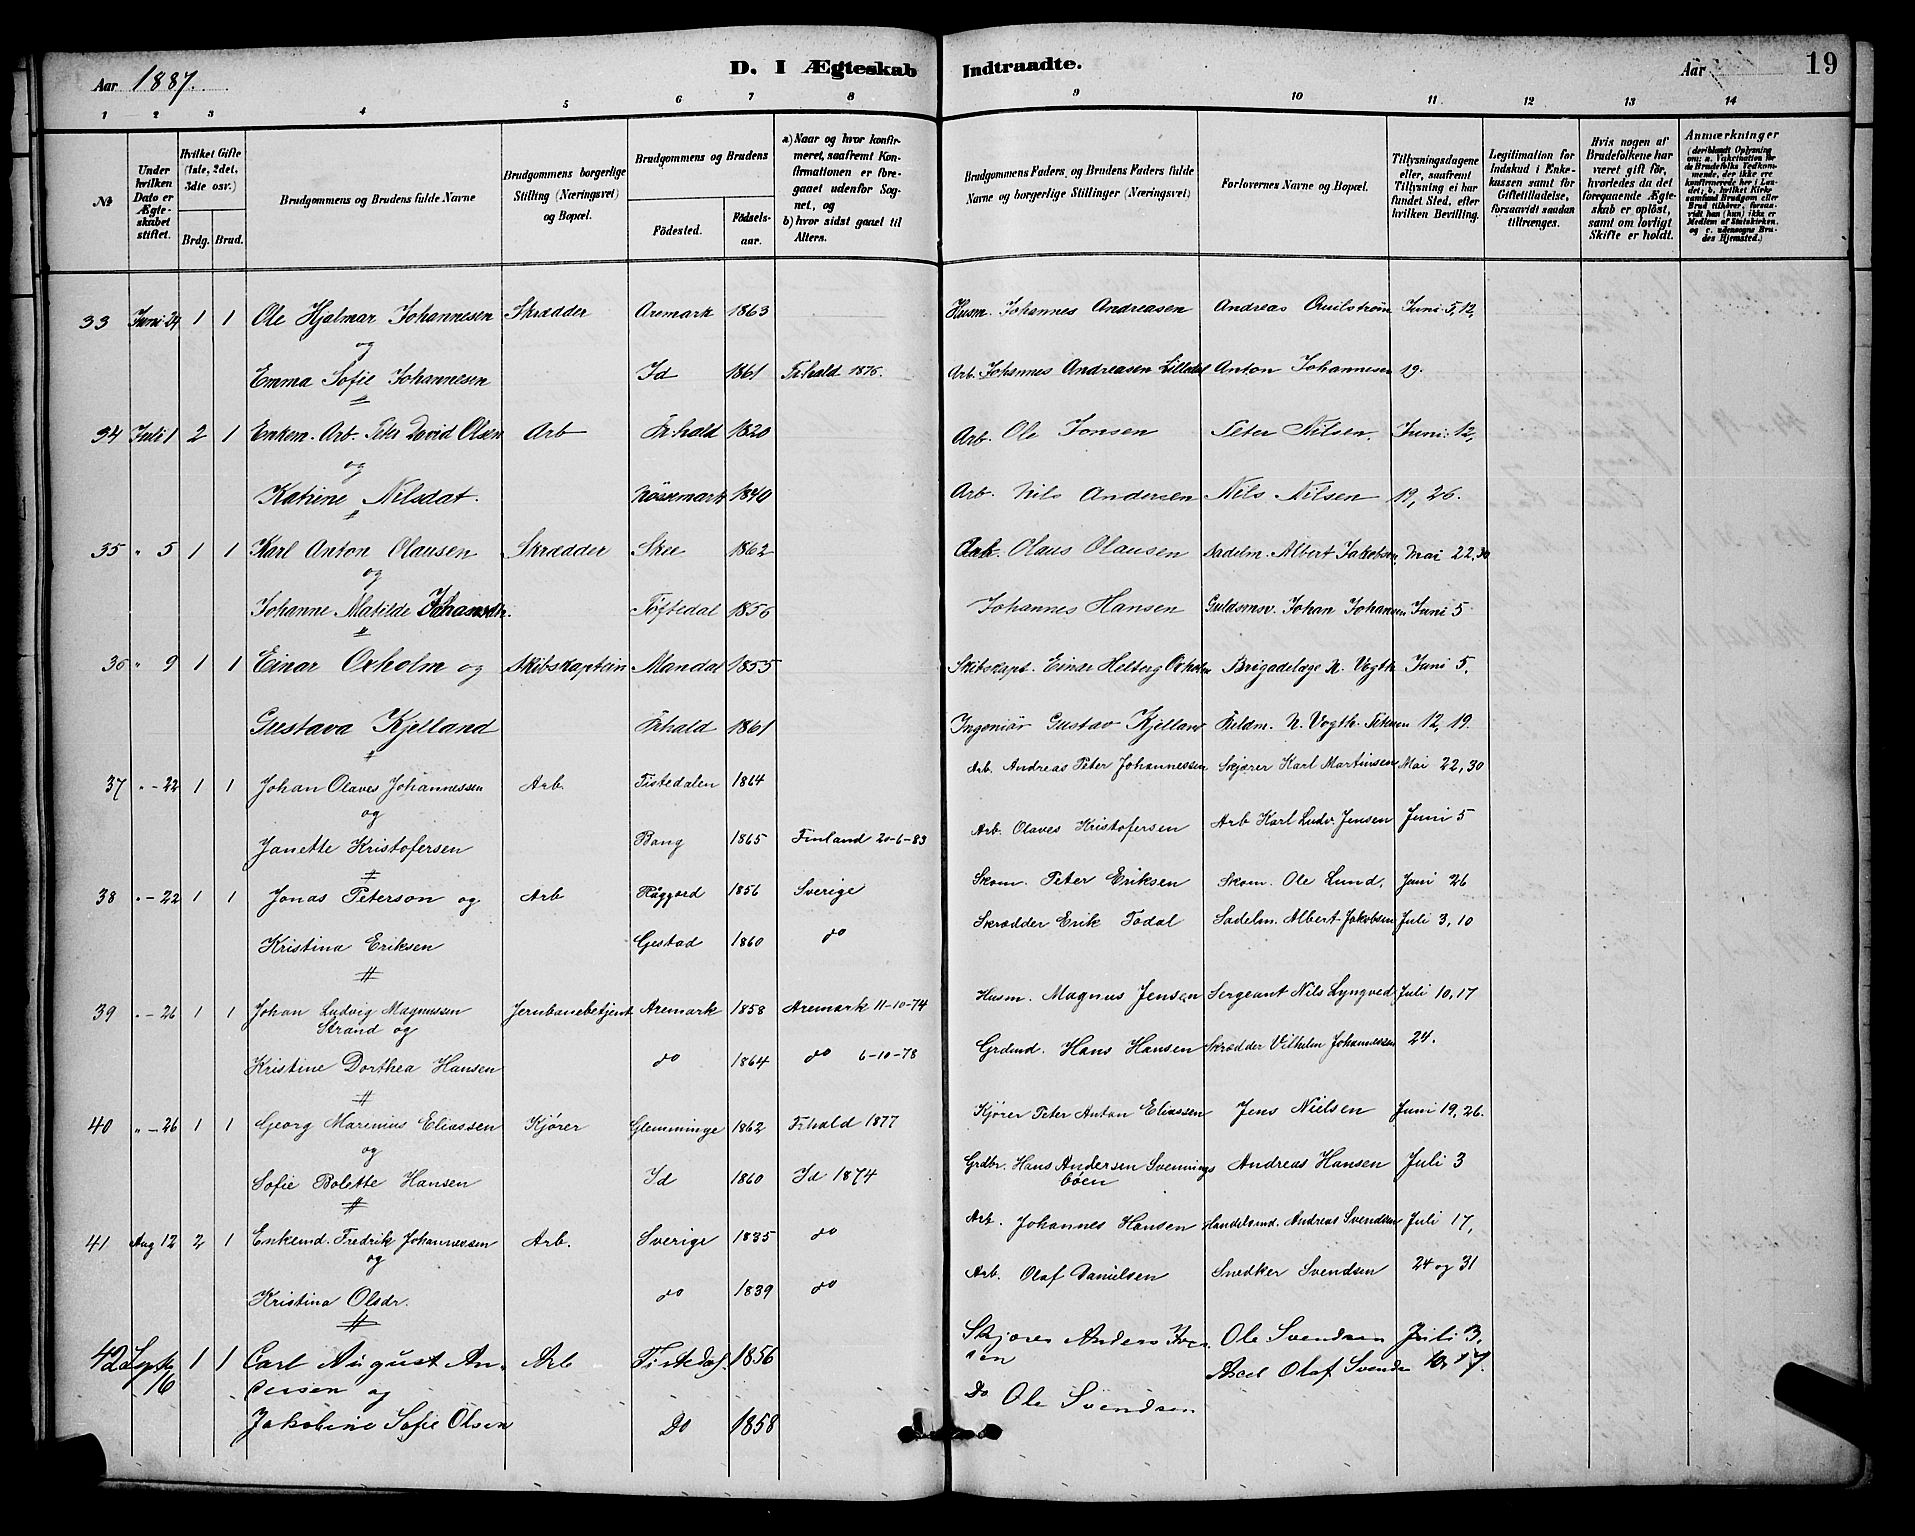 Aar 1887.
D. I Ægteskab Indtraadte.
Aar 19
1 2 3 4 5 6 7 8 9 10 11 12 13 14
№
Under hvilken Dato er Ægteskabet stiftet.
Hvilket Gifte (1ste, 2det, 3die osv.)
Brdg. Brud.
Brudgommens og Brudens fulde Navne
Brudgommens borgerlige Stilling (Næringsvei) og Bopæl.
Brudgommens og Brudens
Fødested. Fødselsaar.
a) Naar og hvor konfirmeret, saafremt Konfirmationen er foregaaet udenfor Sognet, og
b) hvor sidst gaaet til Alters.
Brudgommens Faders, og Brudens Faders fulde Navne og borgerlige Stillinger (Næringsvei)
Forlovernes Navne og Bopæl.
Tillysningsdagene eller, saafremt Tillysning ei har fundet Sted, efter hvilken Bevilling.
Legitimation for Indskud i Enkekassen samt for Giftetilladelse, forsaavidt saadan tiltrænges.
Hvis nogen af Brudefolkene har været gift før, hvorledes da det foregaaende Ægteskab er opløst, samt om lovligt Skifte er holdt.
Anmærkninger
33 Juni 24 1 1 Ole Hjalmar Johannesen Skrædder Aremark 1863 Husm. Johannes Andreasen Andreas Quilstrøm Juni 5, 12,
og
Emma Sofie Johannesen Id 1861 Frhald 1876. Arb. Johannes Andreasen Lilledal Anton Johannesen 19.
34 Juli 1 2 1 Enkem. Arb. Peter David Olsen Arb Frhald 1820 Arb. Ole Jonsen Peter Nilsen. Juni 12,
og
Katrine Nilsdat. Nössemark 1840 Arb. Nils Andersen Nils Nilsen 19, 26.
35 " 5 1 1 Karl Anton Olausen Skrædder Skee 1862 Arb. Olaus Olausen Sadelm. Albert Jakobsen Mai 22, 30
og
Johanne Matilde Johansdtr. Töftedal 1856 Johannes Hansen Guldsmsv. Johan Johansen Juni 5
36 " 9 1 1 Einar Oxholm og Skibskaptein Mandal 1855 Skibskapt. Einar Helberg Oxholm Brigadelæge N. Vogth Juni 5,
Gustava Kjelland Frhald 1861 Ingeniör Gustav Kjelland N. Vogth. 12, 19.
37 " - 22 1 1 Johan Olaves Johannessen Arb. Tistedalen 1864 Arb. Andreas Peter Johannessen Skjærer Karl Martinsen Mai 22, 30
og
Janette Kristofersen Bang 1865 Finland 20-6-83 Arb. Olaves Kristofersen Arb Karl Ludv. Jensen Juni 5
38 " - 22 1 1 Jonas Peterson og Arb Råggärd 1856 Sverige Skom. Peter Eriksen Skom. Ole Lund. Juni 26
Kristina Eriksen Gestad 1860 do Skrædder Erik Todal Sadelm. Albert Jakobsen Juli 3, 10
39 " - 26 1 1 Johan Ludvig Magnussen Jernbanebetjent Aremark 1858 Aremark 11-10-74 Husm. Magnus Jensen Sergeant Nils Lyngved Juli 10, 17
Strand og
Kristine Dorthea Hansen do 1864 do 6-10-78 Grdmd. Hans Hansen Skrædder Vilhelm Johannessen 24.
40 " - 26 1 1 Georg Marinius Eliassen Kjører Glemminge 1862 Frhald 1877 Kjører Peter Anton Eliassen Jens Nielsen Juni 19, 26.
og
Sofie Bolette Hansen Id 1860 Id 1874 Grdbr. Hans Andersen Svennings Andreas Hansen Juli 3
böen
41 Aug 12 2 1 Enkemd. Fredrik Johannessen Arb. Sverige 1835 do Arb. Johannes Hansen Handelsmd. Andreas Svendsen Juli 17,
og
Kristina Olsdr. do 1839 do Arb. Olaf Danielsen Snedker Svendsen 24 og 31
42 Septb 16 1 1 Carl August An- Arb Tistedal. 1856 Skjærer Anders Ole Svendsen Juli 3,
dersen og sen Axel Olaf Svends 10, 17.
Jakobine Sofie Olsen Do 1858 Do Ole Svendsen